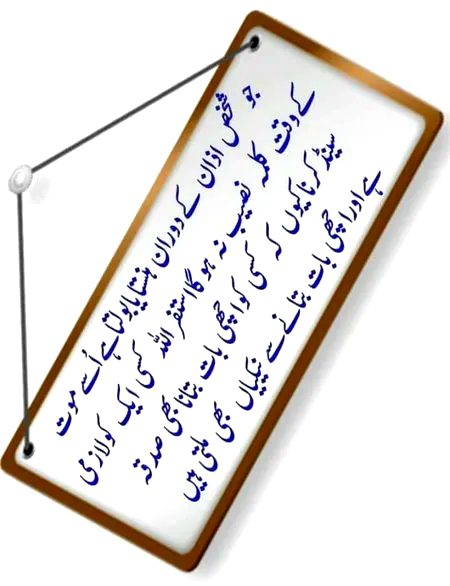 جو شخص اذان کے دوران ہنستا یا بولتا ہے اُسے موت
کے وقت کلمہ نصیب نہ ہوگا استغفر اللہ کسی ایک کو لازمی
سینڈ کرنا کیوں کہ کسی کو اچھی بات بتانا بھی صدقہ
ہے اور اچھی بات بتانے سے نیکیاں بھی ملتی ہیں